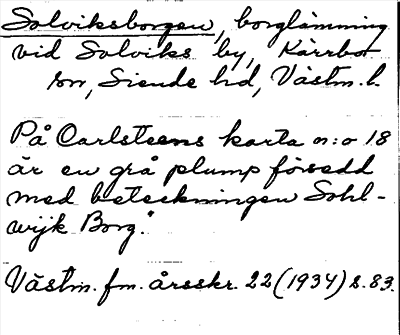 Solviksborgen, borglämning
vid Solviks by, Kärrbo
sn, Siende hd, Västm. l.
På Carlsteens karta n:o 18
är en grå plump försedd
med beteckningen Sohl-
wijk Borg."
Västm. fm. årsskr. 22 (1934) s. 83.